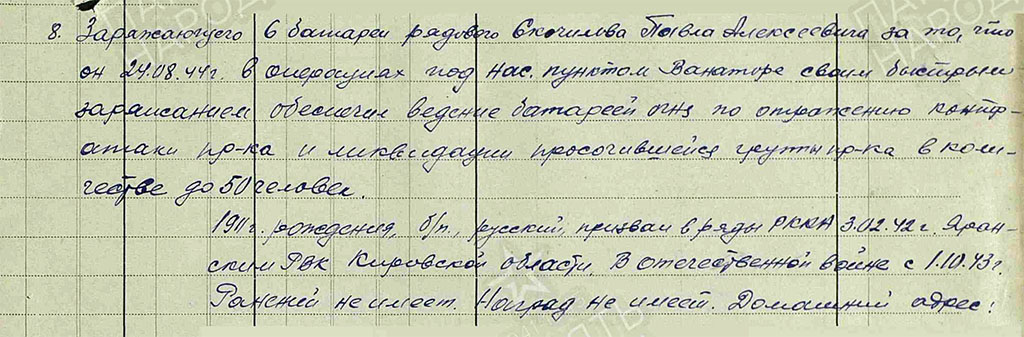 8. Заряжающего 6 батареи рядового Скочилова Павла Алексеевича за то, что
он 24.08.44г. в операциях под нас. пунктом Ванаторе своим быстрым
заряжанием обеспечил ведение батареей огня по отражению контр-
атаки пр-ка и ликвидации просочившейся группы пр-ка в коли-
честве до 50 человек.
1911г. рождения, б/п., русский, призван в ряды РККА 3.02.42г. Яран-
ским РВК Кировской области. В отечественной войне с 1.10.43г.
Ранений не имеет. Наград не имеет. Домашний адрес: